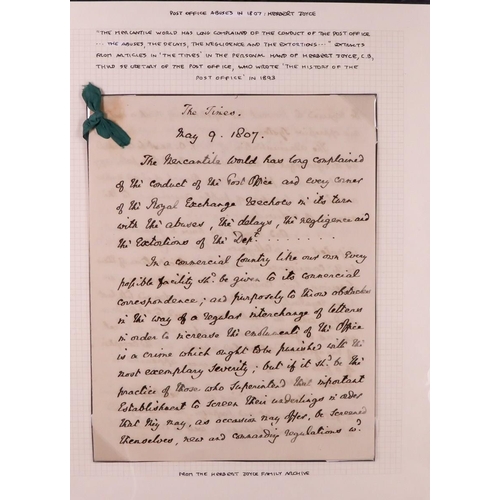 POST OFFICE ABUSES IN 1807 : HERBERT JOYCE
"THE MERCANTILE WORLD HAS LONG COMPLAINED OF THE CONDUCT OF THE POST OFFICE
... THE ABUSES, THE DELAYS, THE NEGLIGENCE AND THE EXTORTIONS...." EXTRACTS
FROM ARTICLES IN 'THE TIMES' IN THE PERSONAL HAND OF HERBERT JOYCE, C.B,
THIRD SECRETARY OF THE POST OFFICE, WHO WROTE 'THE HISTORY OF THE
POST OFFICE' IN 1893
The Times.
May 9. 1807.
The Mercantile World has long complained
of the conduct of the Post Office and every corner
of the Royal Exchange reechoes in its turn
with the abuses, the delays, the negligence and
the Extortions of the Dept. . . . . . . .
In a commercial Country like our own Every
possible facility shd. be given to its commercial
correspondence; and purposely to throw obstacles
in the way of a regular interchange of letters
in order to increase the emoluments of the Office
is a crime which ought to be punished with the
most exemplary severity; but if it shd. be the
practice of those who superintend that important
Establishment to screen their underlings in order
that they may, as occasion may offer, be screened
themselves, new and commanding regulations wd.
FROM THE HERBERT JOYCE FAMILY ARCHIVE